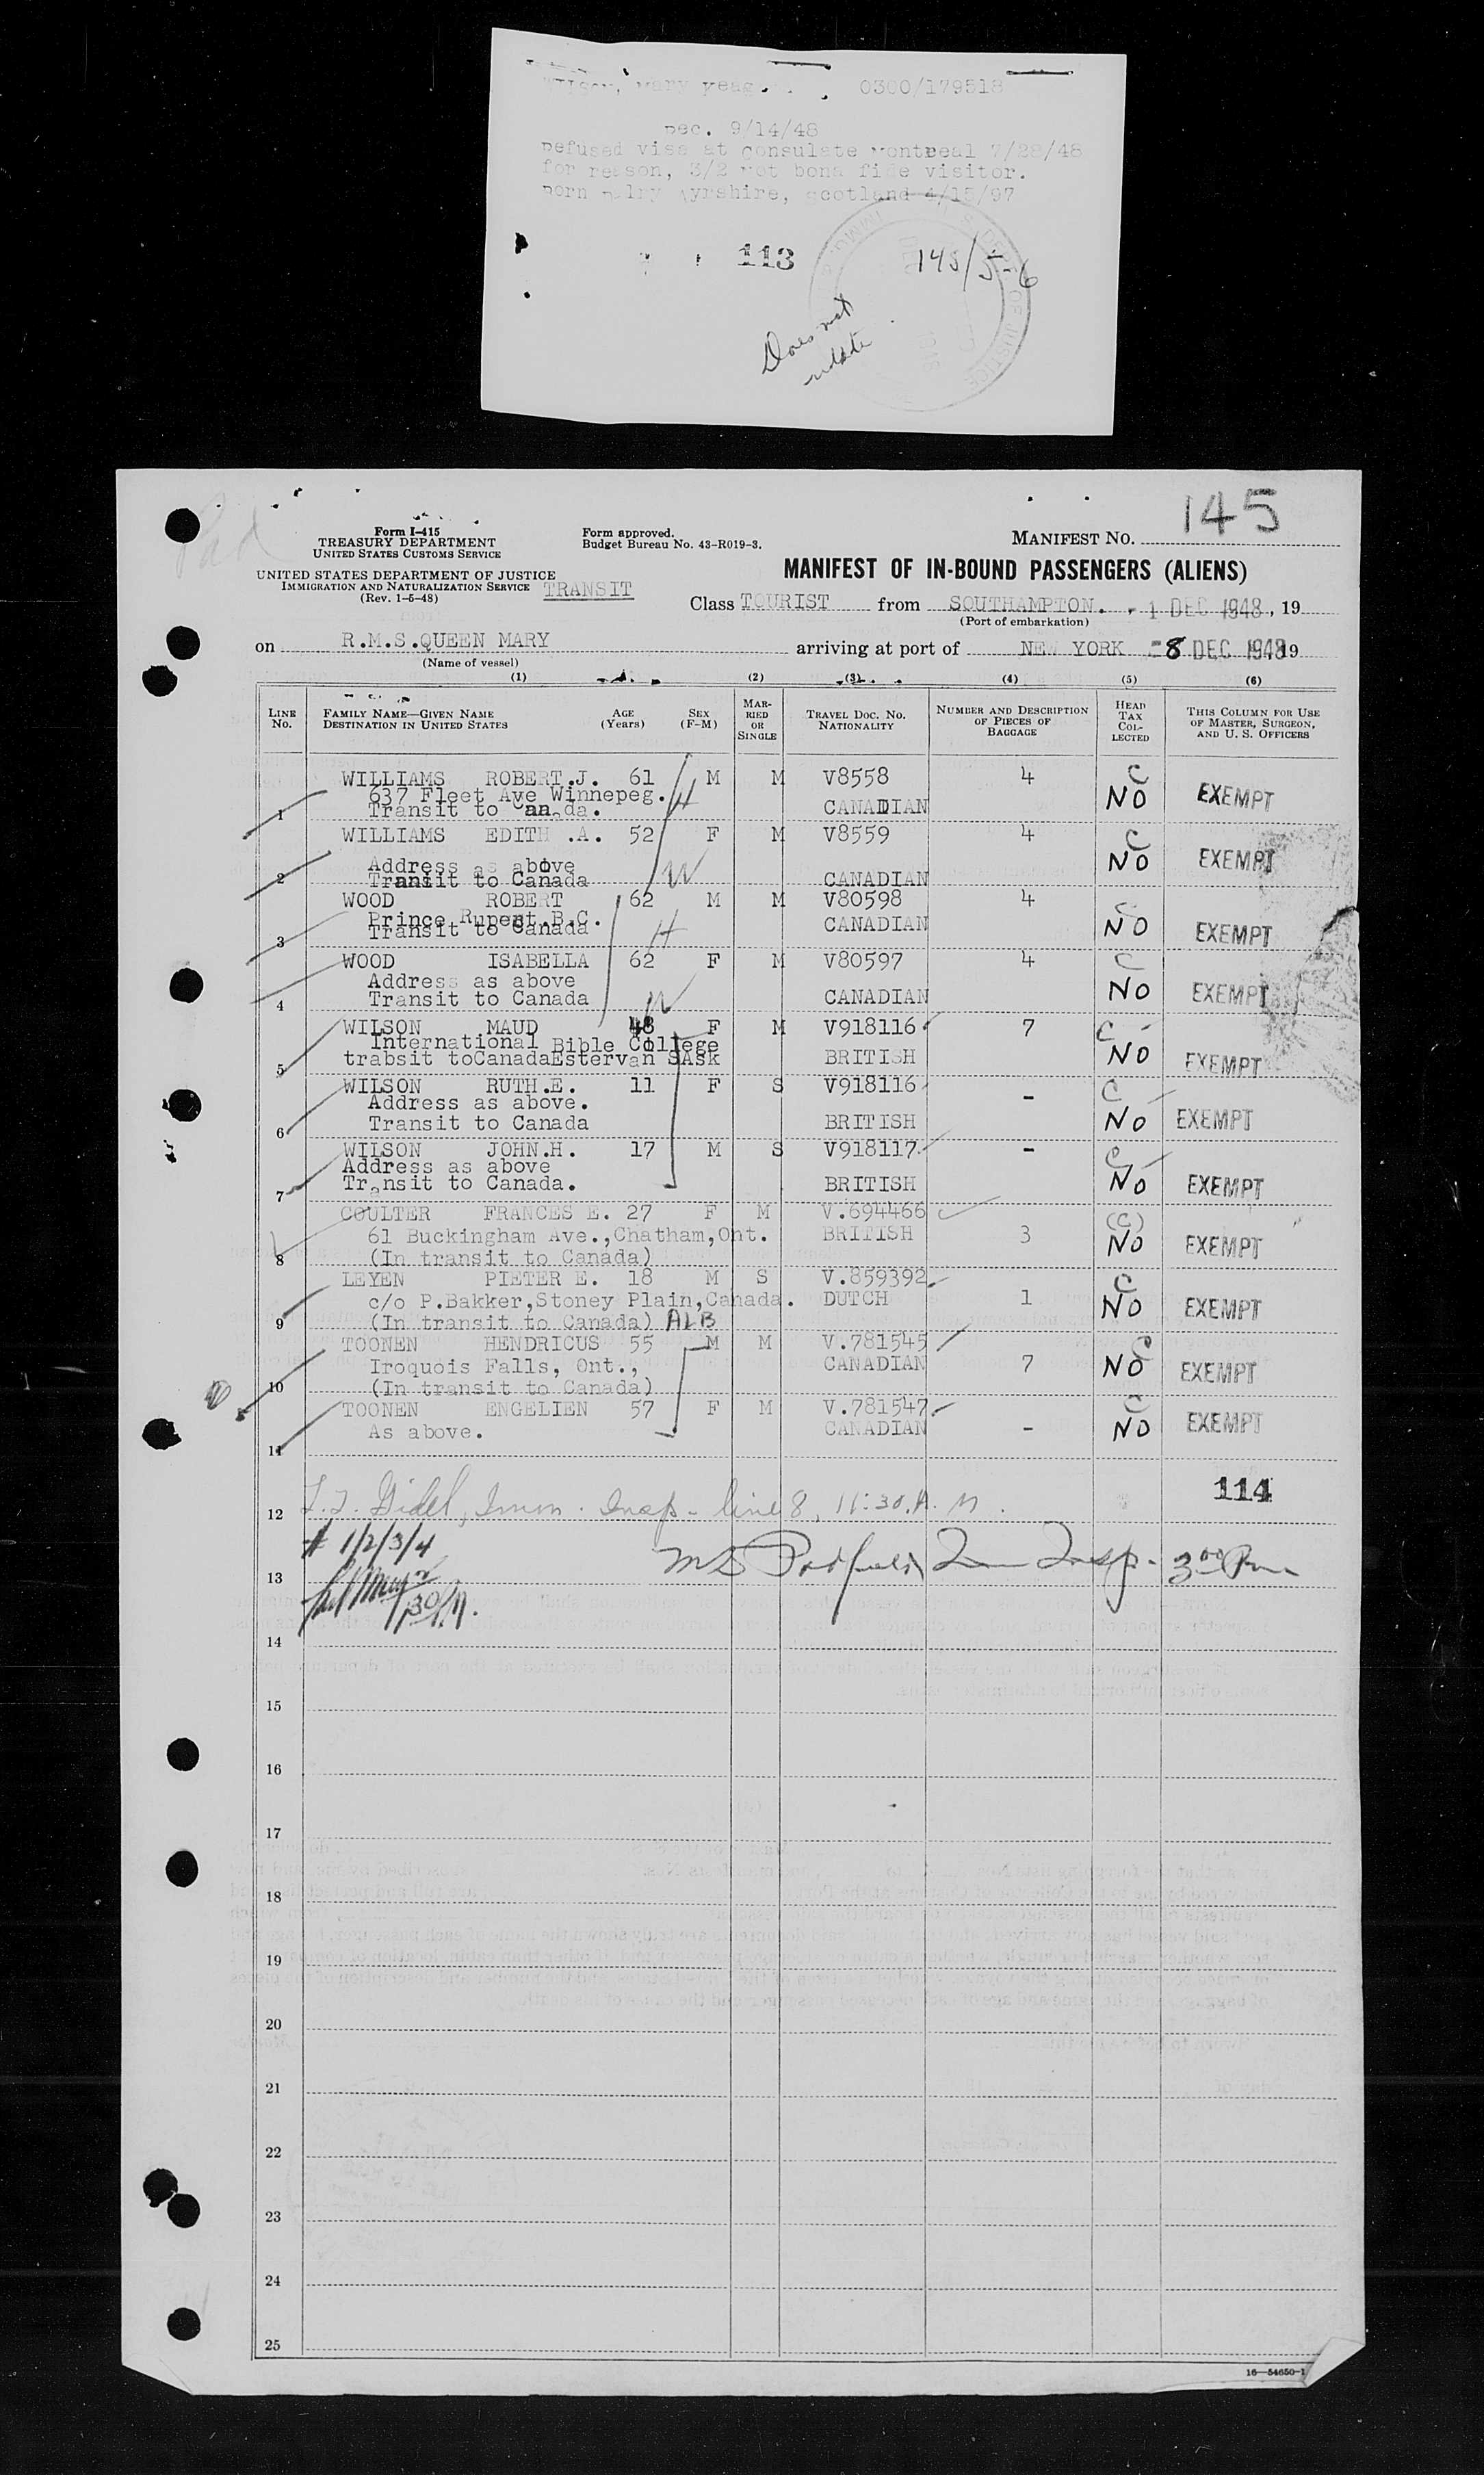 0300/179518
Dec. 9/14/48
Refused visa at Consulate Montreal 7/28/48
for reason, 3/2 Not bona fide visitor.
Born Dalry Ayrshire, Scotland 4/15/97
113
145/5-6
Does not
relate
145
Form I-415
TREASURY DEPARTMENT
UNITED STATES CUSTOMS SERVICE
Form approved.
Budget Bureau No. 43-R019-3.
MANIFEST NO.
UNITED STATES DEPARTMENT OF JUSTICE
IMMIGRATION AND NATURALIZATION SERVICE
(Rev. 1-5-48)
TRANSIT
MANIFEST OF IN-BOUND PASSENGERS (ALIENS)
Class TOURIST from SOUTHAMPTON. - 1 DEC 1948, 19
(Port of embarkation)
on R.M.S.QUEEN MARY arriving at port of NEW YORK -8 DEC 1948 19
(Name of vessel)
(1) (2) (3) (4) (5) (6)
LINE No. FAMILY NAME—GIVEN NAME DESTINATION IN UNITED STATES AGE (Years) SEX (F-M) MARRIED OR SINGLE TRAVEL DOC. NO. NATIONALITY NUMBER AND DESCRIPTION OF PIECES OF BAGGAGE HEAD TAX COLLECTED THIS COLUMN FOR USE OF MASTER, SURGEON, AND U. S. OFFICERS
WILLIAMS ROBERT.J. 61 M M V8558 4 C
637 Fleet Ave Winnepeg. H NO EXEMPT
1 Transit to Canada. CANADIAN
WILLIAMS EDITH .A. 52 F M V8559 4 C
Address as above W NO EXEMPT
2 Transit to Canada CANADIAN
WOOD ROBERT 62 M M V80598 4 C
Prince Rupert.B.C. CANADIAN NO EXEMPT
3 Transit to Canada H
WOOD ISABELLA 62 F M V80597 4 C
Address as above NO EXEMPT
4 Transit to Canada W CANADIAN
WILSON MAUD 48 F M V918116 7 C
International Bible College NO EXEMPT
5 trabsit toCanadaEstervan SAsk BRITISH
WILSON RUTH.E. 11 F S V918116 - C
Address as above.
6 Transit to Canada BRITISH NO EXEMPT
WILSON JOHN.H. 17 M S V918117 - C
Address as above
7 Transit to Canada. BRITISH NO EXEMPT
COULTER FRANCES E. 27 F M V.694466 (C)
61 Buckingham Ave.,Chatham,Ont. BRITISH 3 NO EXEMPT
8 (In transit to Canada)
LEYEN PIETER E. 18 M S V.859392 C
c/o P.Bakker,Stoney Plain,Canada. DUTCH 1 NO EXEMPT
9 (In transit to Canada) ALB
TOONEN HENDRICUS 55 M M V.781545 C
Iroquois Falls, Ont., CANADIAN 7 NO EXEMPT
10 (In transit to Canada)
TOONEN ENGELIEN 57 F M V.781547 C
As above. CANADIAN - NO EXEMPT
11
114
12 Immn. Insp - line 8, 11:30 A. M.
# 1/2/3/4
13 Insp. 3 00 Pm
14
15
16
17
18
19
20
21
22
23
24
25
16—54650-1